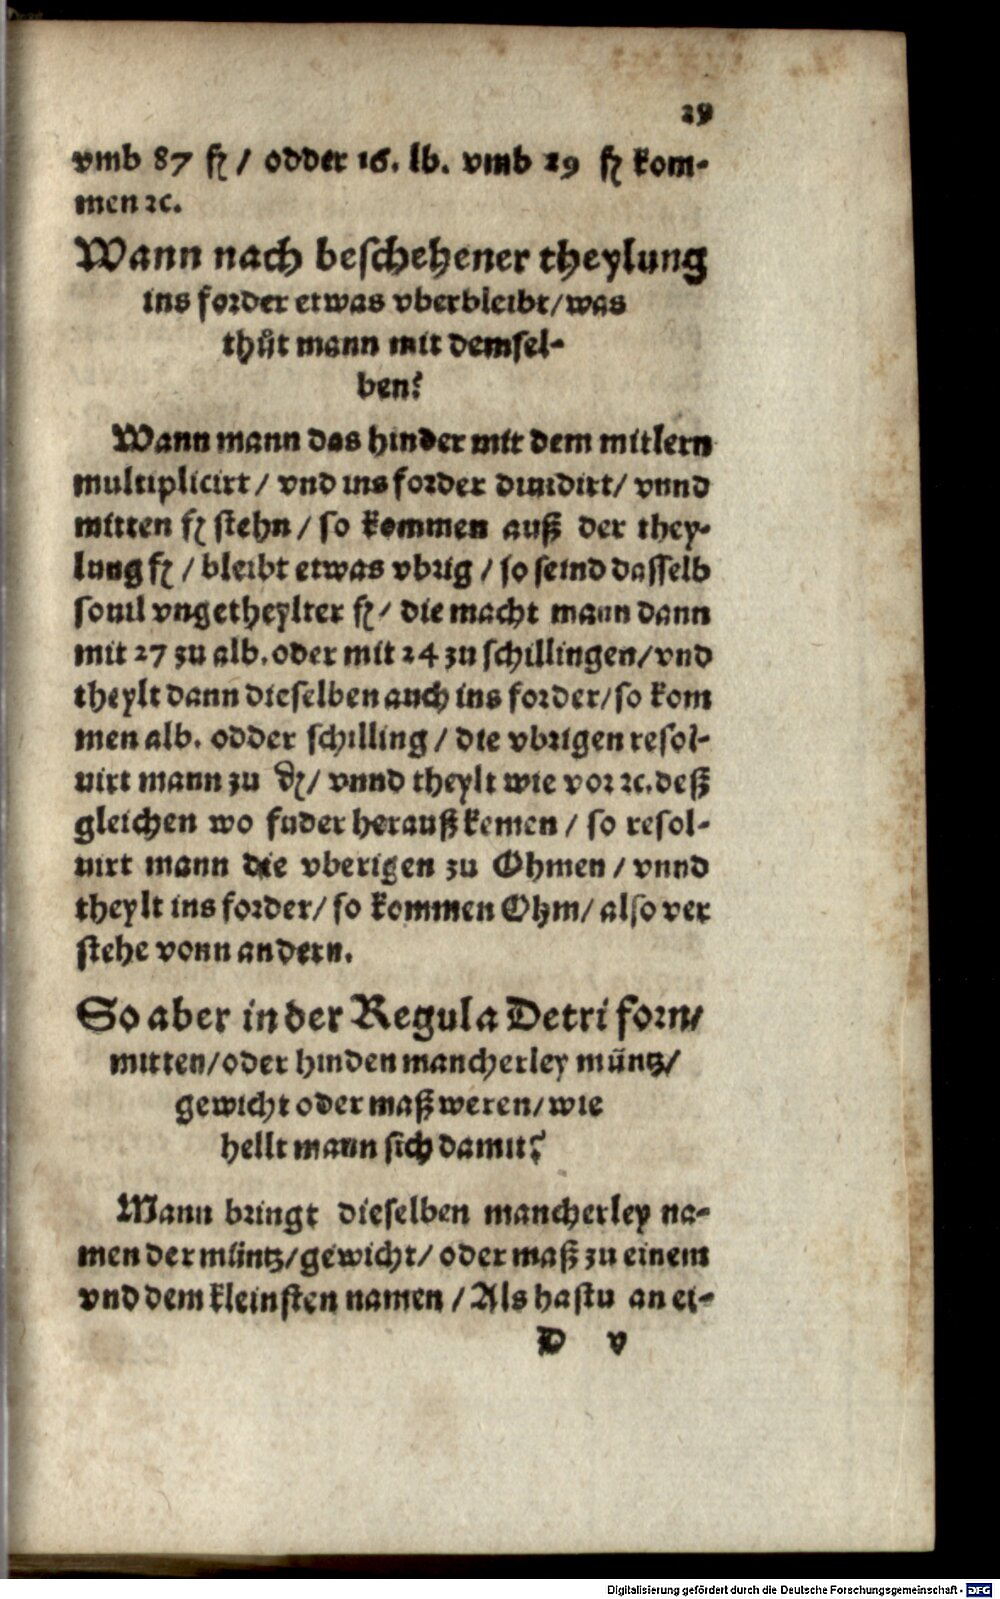 29
vmb 87 fl / odder 16. lb. vmb 29 fl kom-
men ꝛc.
Wann nach beschehener theylung
ins forder etwas vberbleibt/was
thůt mann mit demsel-
ben?
Wann mann das hinder mit dem mitlern
multiplicirt / vnd ins forder diuidirt/ vnnd
mitten fl stehn / so kommen auß der they-
lung fl / bleibt etwas vbrig / so seind dasselb
souil vngetheylter fl/ die macht mann dann
mit 27 zu alb. oder mit 24 zu schillingen/vnd
theylt dann dieselben auch ins forder/so kom
men alb. odder schilling / die vbrigen resol-
uirt mann zu ₰/ vnnd theylt wie vor ꝛc. deß
gleichen wo fuder herauß kemen / so resol-
uirt mann die vberigen zu Ohmen / vnnd
theylt ins forder/ so kommen Ohm/ also ver
stehe vonn andern.
So aber in der Regula Detri forn/
mitten/oder hinden mancherley müntz/
gewicht oder maß weren/wie
hellt mann sich damit?
Mann bringt dieselben mancherley na-
men der müntz/gewicht/ oder maß zu einem
vnd dem kleinsten namen / Als hastu an ei-
D v
Digitalisierung gefördert durch die Deutsche Forschungsgemeinschaft - DFG